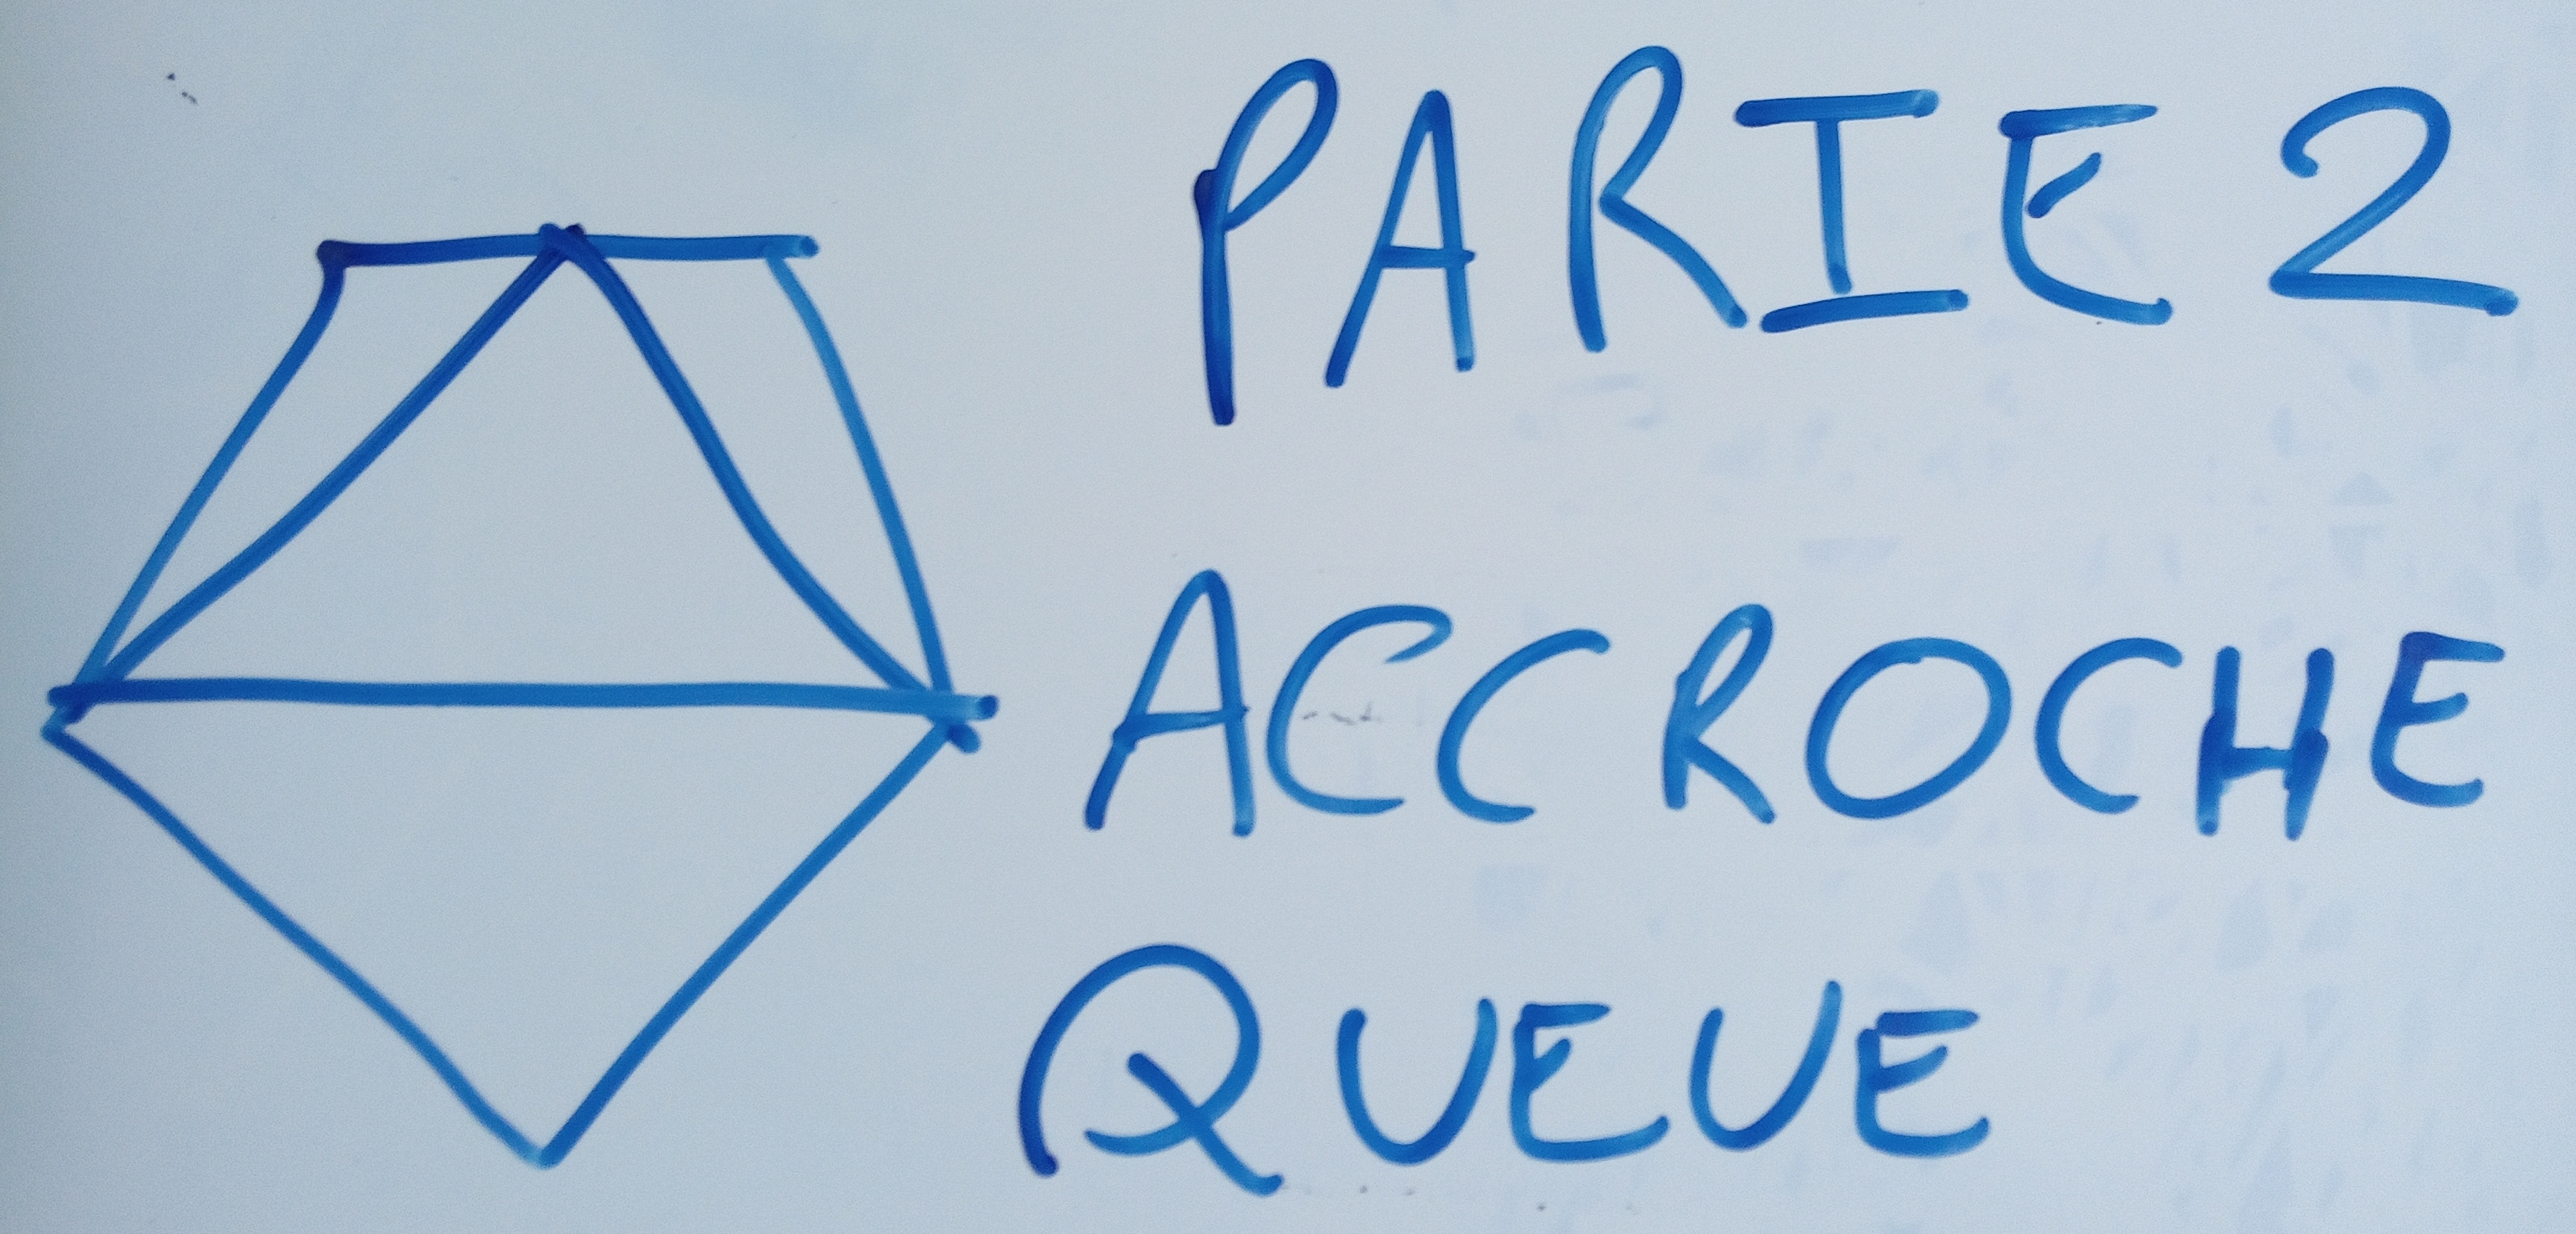 PARIE 2
ACCROCHE
QUEUE